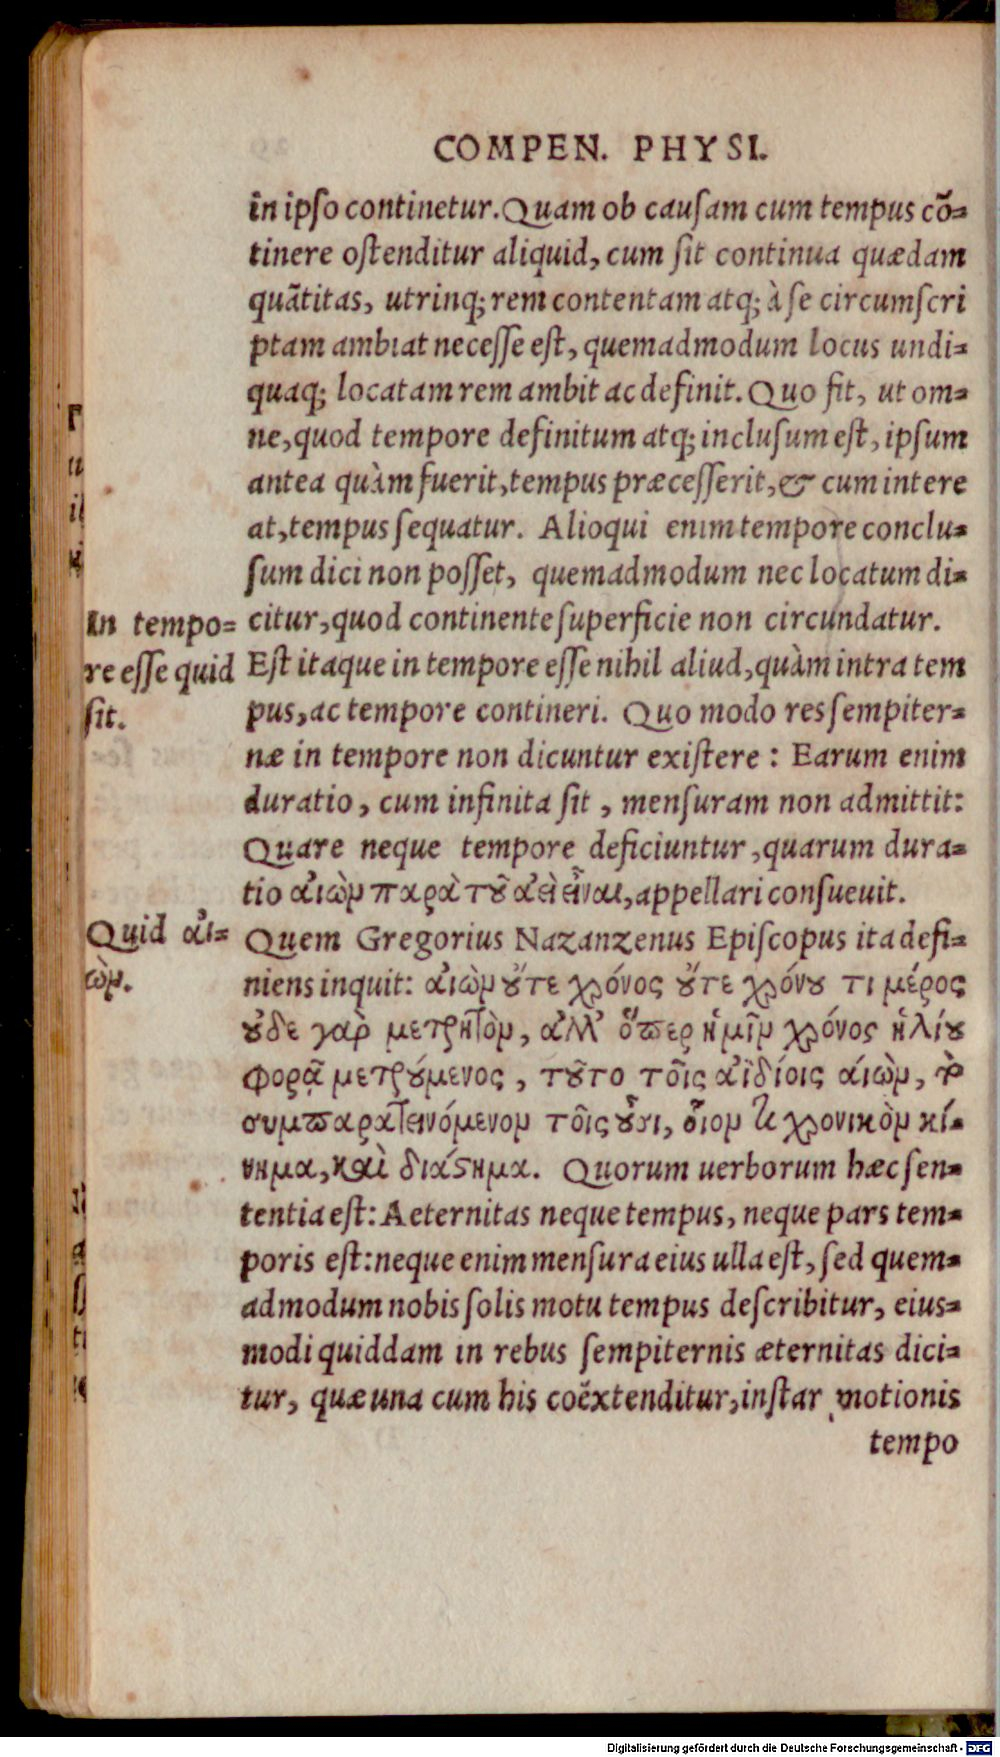 COMPEN. PHYSI.
in ipſo continetur. Quam ob cauſam cum tempus cō-
tinere oſtenditur aliquid, cum ſit continua quædam
quātitas, utrinq; rem contentam atq; à ſe circumſcri
ptam ambiat neceſſe eſt, quemadmodum locus undi-
quaq; locatam rem ambit ac definit. Quo fit, ut om-
ne, quod tempore definitum atq; incluſum eſt, ipſum
antea quàm fuerit, tempus præceſſerit, & cum intere
at, tempus ſequatur. Alioqui enim tempore conclu-
ſum dici non poſſet, quemadmodum nec locatum di-
In tempo-
re eſſe quid
ſit.
citur, quod continente ſuperficie non circundatur.
Eſt itaque in tempore eſſe nihil aliud, quàm intra tem
pus, ac tempore contineri. Quo modo res ſempiter-
næ in tempore non dicuntur exiſtere: Earum enim
duratio, cum infinita ſit, menſuram non admittit:
Quare neque tempore deficiuntur, quarum dura-
tio αἰὼν παρὰ τȣ͂ ἀεὶ εἶναι, appellari conſueuit.
Quid αἰ-
ὼν.
Quem Gregorius Nazanzenus Epiſcopus ita defi-
niens inquit: αἰὼν ȣ̓́τε χρόνος ȣ̓́τε χρόνȣ τι μέρος
ȣ̓δε γαρ̀ μετρητὸν, ἀλλ' ὅπερ ἡμῖν χρόνος ἡλίȣ
φορᾷ μετρȣ́μενος, τȣ͂το τοῖς ἀϊδίοις αἰὼν, τὸ
συμπαρατεινόμενον τοῖς ȣ̓͂σι, οἷον τι χρονικὸν κί-
νημα, καὶ διάςημα. Quorum uerborum hæc ſen-
tentia eſt: Aeternitas neque tempus, neque pars tem-
poris eſt: neque enim menſura eius ulla eſt, ſed quem-
admodum nobis ſolis motu tempus deſcribitur, eius-
modi quiddam in rebus ſempiternis æternitas dici-
tur, quæ una cum his coëxtenditur, inſtar motionis
tempo
Digitalisierung gefördert durch die Deutsche Forschungsgemeinschaft - DFG